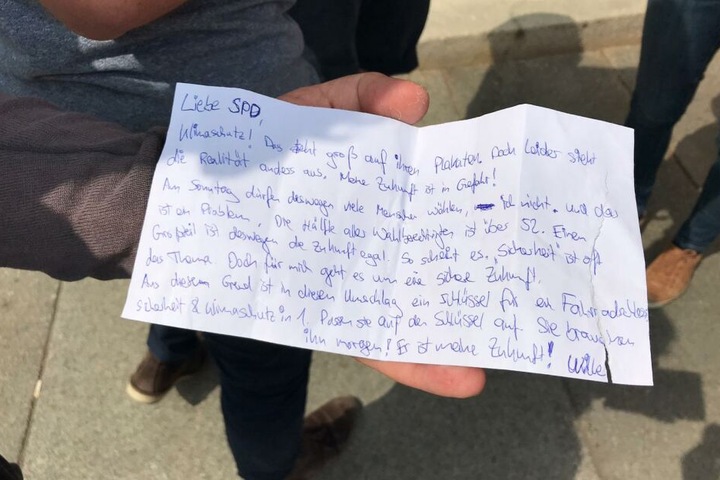 Liebe SPD,
Klimaschutz! Das steht groß auf ihren Plakaten. Doch Leider sieht
die Realität anders aus. Meine Zukunft ist in Gefahr!
Am Sonntag dürfen deswegen viele Menschen wählen, Ich nicht. und das
ist ein Problem. Die Hälfte aller Wahlberechtigten ist über 52. Einen
Großteil ist deswegen die Zukunft egal. So scheint es. "Sicherheit" ist oft
das Thema. Doch für mich geht es um eine sichere Zukunft.
Aus diesem Grund ist in diesem Umschlag ein Schlüssel für ein Fahrradschloss
sicherheit & Klimaschutz in 1. Passen sie auf den Schlüssel auf sie brauchen
ihn morgen! Es ist meine Zukunft!